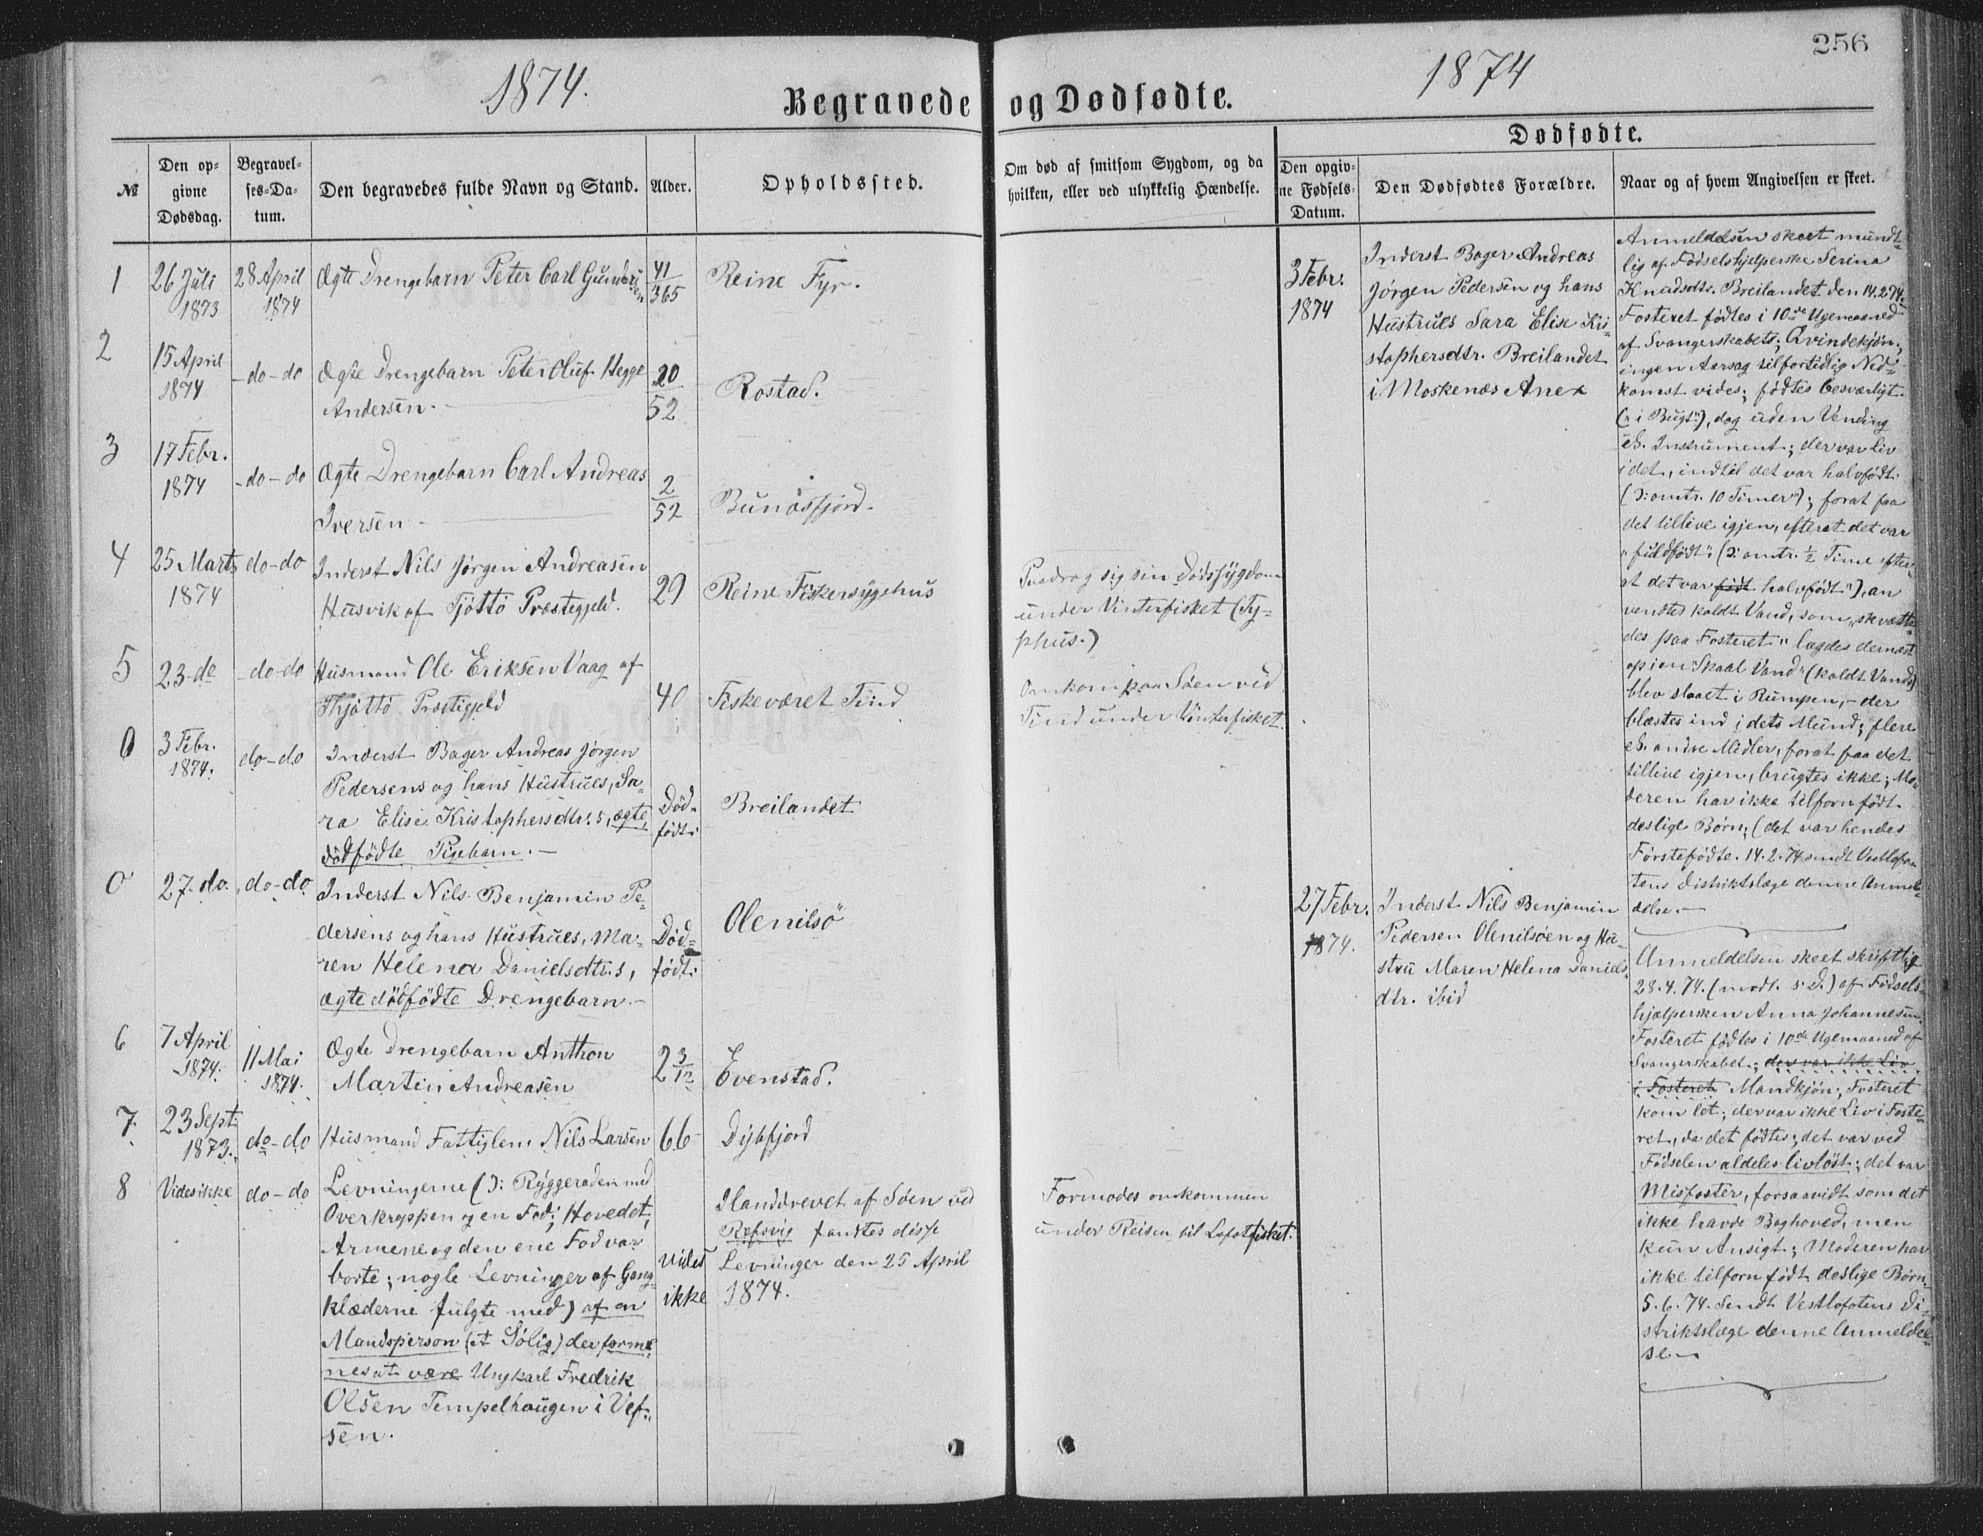 256
1874.
1874
Begravede og Dødfødte.
Dødfødte.
№
Den op-
givne
Dødsdag.
Begravel-
ses-Da-
tum.
Den begravedes fulde Navn og Stand.
Alder.
Opholdssted.
Om død af smitsom Sygdom, og da
hvilken, eller ved ulykkelig Hændelse.
Den opgiv-
ne Fødsels-
Datum.
Den Dødfødtes Forældre.
Naar og af hvem Angivelsen er skeet.
1
26 Juli
1873
28 April
1874
Ægte Drengebarn Peter Carl Gundersen
41
365
Reine Fyr.
2
15 April
1874
-do-do
Ægte Drengebarn Peter Oluf Hegge
Andersen.-
20
52
Rostad.
3
17 Febr.
1874
-do-do
Ægte Drengebarn Carl Andreas
Iversen-
2
52
Bunæsfjord.
4
25 Marts
1874
do-do
Inderst Nils Jørgen Andreasen
Husvik af Tjøttø Præstegjeld.
29
Reine Fiskersygehus
Paadrog sig sin Dødssygdom
under Vinterfisket (Ty-
phus.)
5
23 de
-do-do
Husmand Ole Eriksen Vaag af
Thjøttø Præstegjeld
40
Fiskeværet Tind
Omkom paa Søen ved
Tind under Vinterfisket.
0
3 Febr.
1874.
do-do
Inderst Bager Andreas Jørgen
Pedersens og hans Hustrues, Sa-
ra Elise Kristophersdtr.s, ægte,
dødfødte Pigebarn.-
Død-
født:
Breilandet
0
27. do.
do-do.
Inderst Nils Benjamin Pe-
dersens og hans Hustrues, Ma-
ren Helena Danielsdtr.s,
ægte dødfødte Drengebarn.-
Død-
født:
Olenilsø
6
7 April
1874.
11 Mai
1874.
Ægte Drengebarn Anthon
Martin Andreasen
2 3/12
Evenstad.
7.
23 Sept.
1873.
do-do
Husmand Fattiglem Nils Larsen
66
Dybfjord
8
Vides ikke
do-do
Levningerne (ɔ: Ryggeraden med
Overkroppen og en Fod; Hovedet,
Armene og den ene Fod var
borte; nogle Levninger af Gang-
klæderne fulgte med) af en
Mandsperson (et Sølig) der forme-
nes at være Ungkarl Fredrik
Olsen Tempelhaugen i Vef-
sen.
vides
ikke
Ilanddrevet af Søen ved
Refsvig fandtes disse
Levninger den 25 April
1874.
Formodes omkommen
under Reisen til Lofotfisket.
3 Febr.
1874
Inderst Bager Andreas
Jørgen Pedersen og hans
Hustrues Sara Elise Kri-
stophersdtr. Breilandet
i Moskenæs Anex
Anmeldelsen skeet mundt-
lig af Fødselshjelperske Serina
Knudsdtr. Breilandet den 14.2.74.
Fosteret fødtes i 10de Ugemaaned
af Svangerskabet; Qvindekjøn;
ingen Aarsag til fortidlig Ned-
komst vides; fødtes besværligt
("i Bugt"), dog uden Vending
el. Instrument; der var Liv
i det, indtil det var halvfødt.
(ɔ: omtr. 10 Timer"); forat faa
det tillive igjen, efterat det var
"fuldfødt" (ɔ: omtr. ½ Time efter-
at det var født halvfødt"), an
vendtes koldt Vand, som "skvætte-
des paa Fosteret" lagdes dernæst
op i en "Skaal Vand" (koldt Vand)
blev slaaet i Rumpen,- der
blæstes ind i dets Mund; flere
el. andre Midler, forat faa det
tillive igjen, brugtes ikke; Mo-
deren har ikke tilforn født
deslige Børn; (det var hendes
Førstefødte. 14.2.74 sendt Vestlofo-
tens Distriktslæge denne Anmel-
delse.-
27 Febr.
1874.
Inderst Nils Benjamin
Pedersen Olenilsøen og Hu-
stru Maren Helena Daniels-
dtr. ibid
Anmeldelsen skeet skriftlig
28.4.74. (modt. s. D.) af Fødsels-
hjælpersken Anna Johannesen.
Fosteret fødtes i 10de Ugemaaned af
Svangerskabet; der var ikke Liv
i Fosteret Mandkjøn; Fosteret
kom let; der var ikke Liv i Foste-
ret, da det fødtes; det var ved
Fødselen aldeles livløst; det var
Misfoster, forsaavidt som det
ikke havde Baghoved, men
kun Ansigt; Moderen har
ikke tilforn født deslige Børn.
5.6.74. Sendt Vestlofotens Di-
striktslæge denne Anmeldel-
se.-